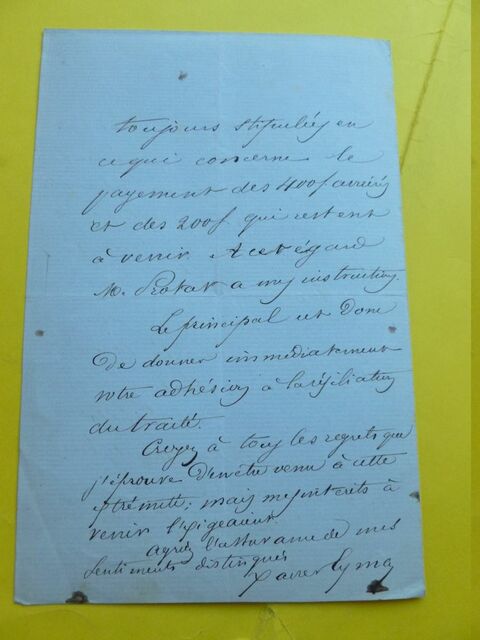 toujours stipulées en
ce qui concerne le
payement des 400f arriérés
et des 200f qui restent
à venir. A cet égard
M. Protat a mes instructions.
Le principal est donc
de donner immédiatement
votre adhésion à la résiliation
du traité.
Croyez à tous les regrets que
j'éprouve d'en être venu à cette
extrémité; mais mes intérêts à
venir l'exigeaient.
Agréez l'assurance de mes
sentiments distingués
Xavier Eyma